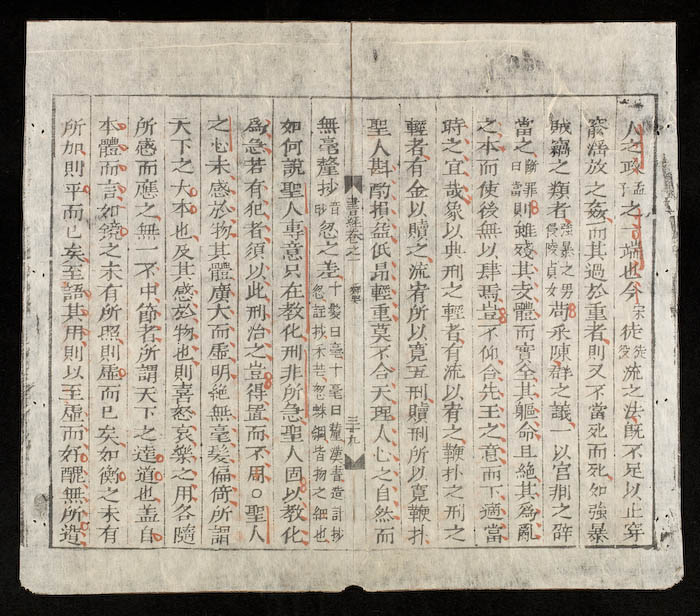 人之政孟子之一端也今宋徒流之法既不足以止穿
窬淫放之姦而其過於重者則又不當死而死如強暴
賊竊之類者強暴之男侵陵貞女苟采陳群之議一以宮剕之辟
當之斷罪曰當則雖殘其支體而實全其軀命且絕其為亂
之本而使後無以肆焉豈不仰合先王之意而下適當
時之宜哉象以典刑之輕者有流以宥之鞭扑之刑之
輕者有金以贖之流宥所以寬五刑贖刑所以寬鞭扑
聖人斟酌損益低昂輕重莫不合天理人心之自然而
書經卷之一 舜典 三十九
無毫釐抄音眇忽之差十髮曰毫十毫曰釐漢書造計抄忽註抄禾芒忽蛛網皆物之細也
如何說聖人專意只在教化刑非所急聖人固以教化
為急若有犯者須以此刑治之豈得置而不用○聖人
之心未感於物其體廣大而虛明絕無毫髮偏倚所謂
天下之大本也及其感於物也則喜怒哀樂之用各隨
所感而應之無一不中節者所謂天下之達道也盖自
本體而言如鏡之未有所照則虛而已矣如衡之未有
所加則平而已矣至語其用則以至虛而好醜無所遁